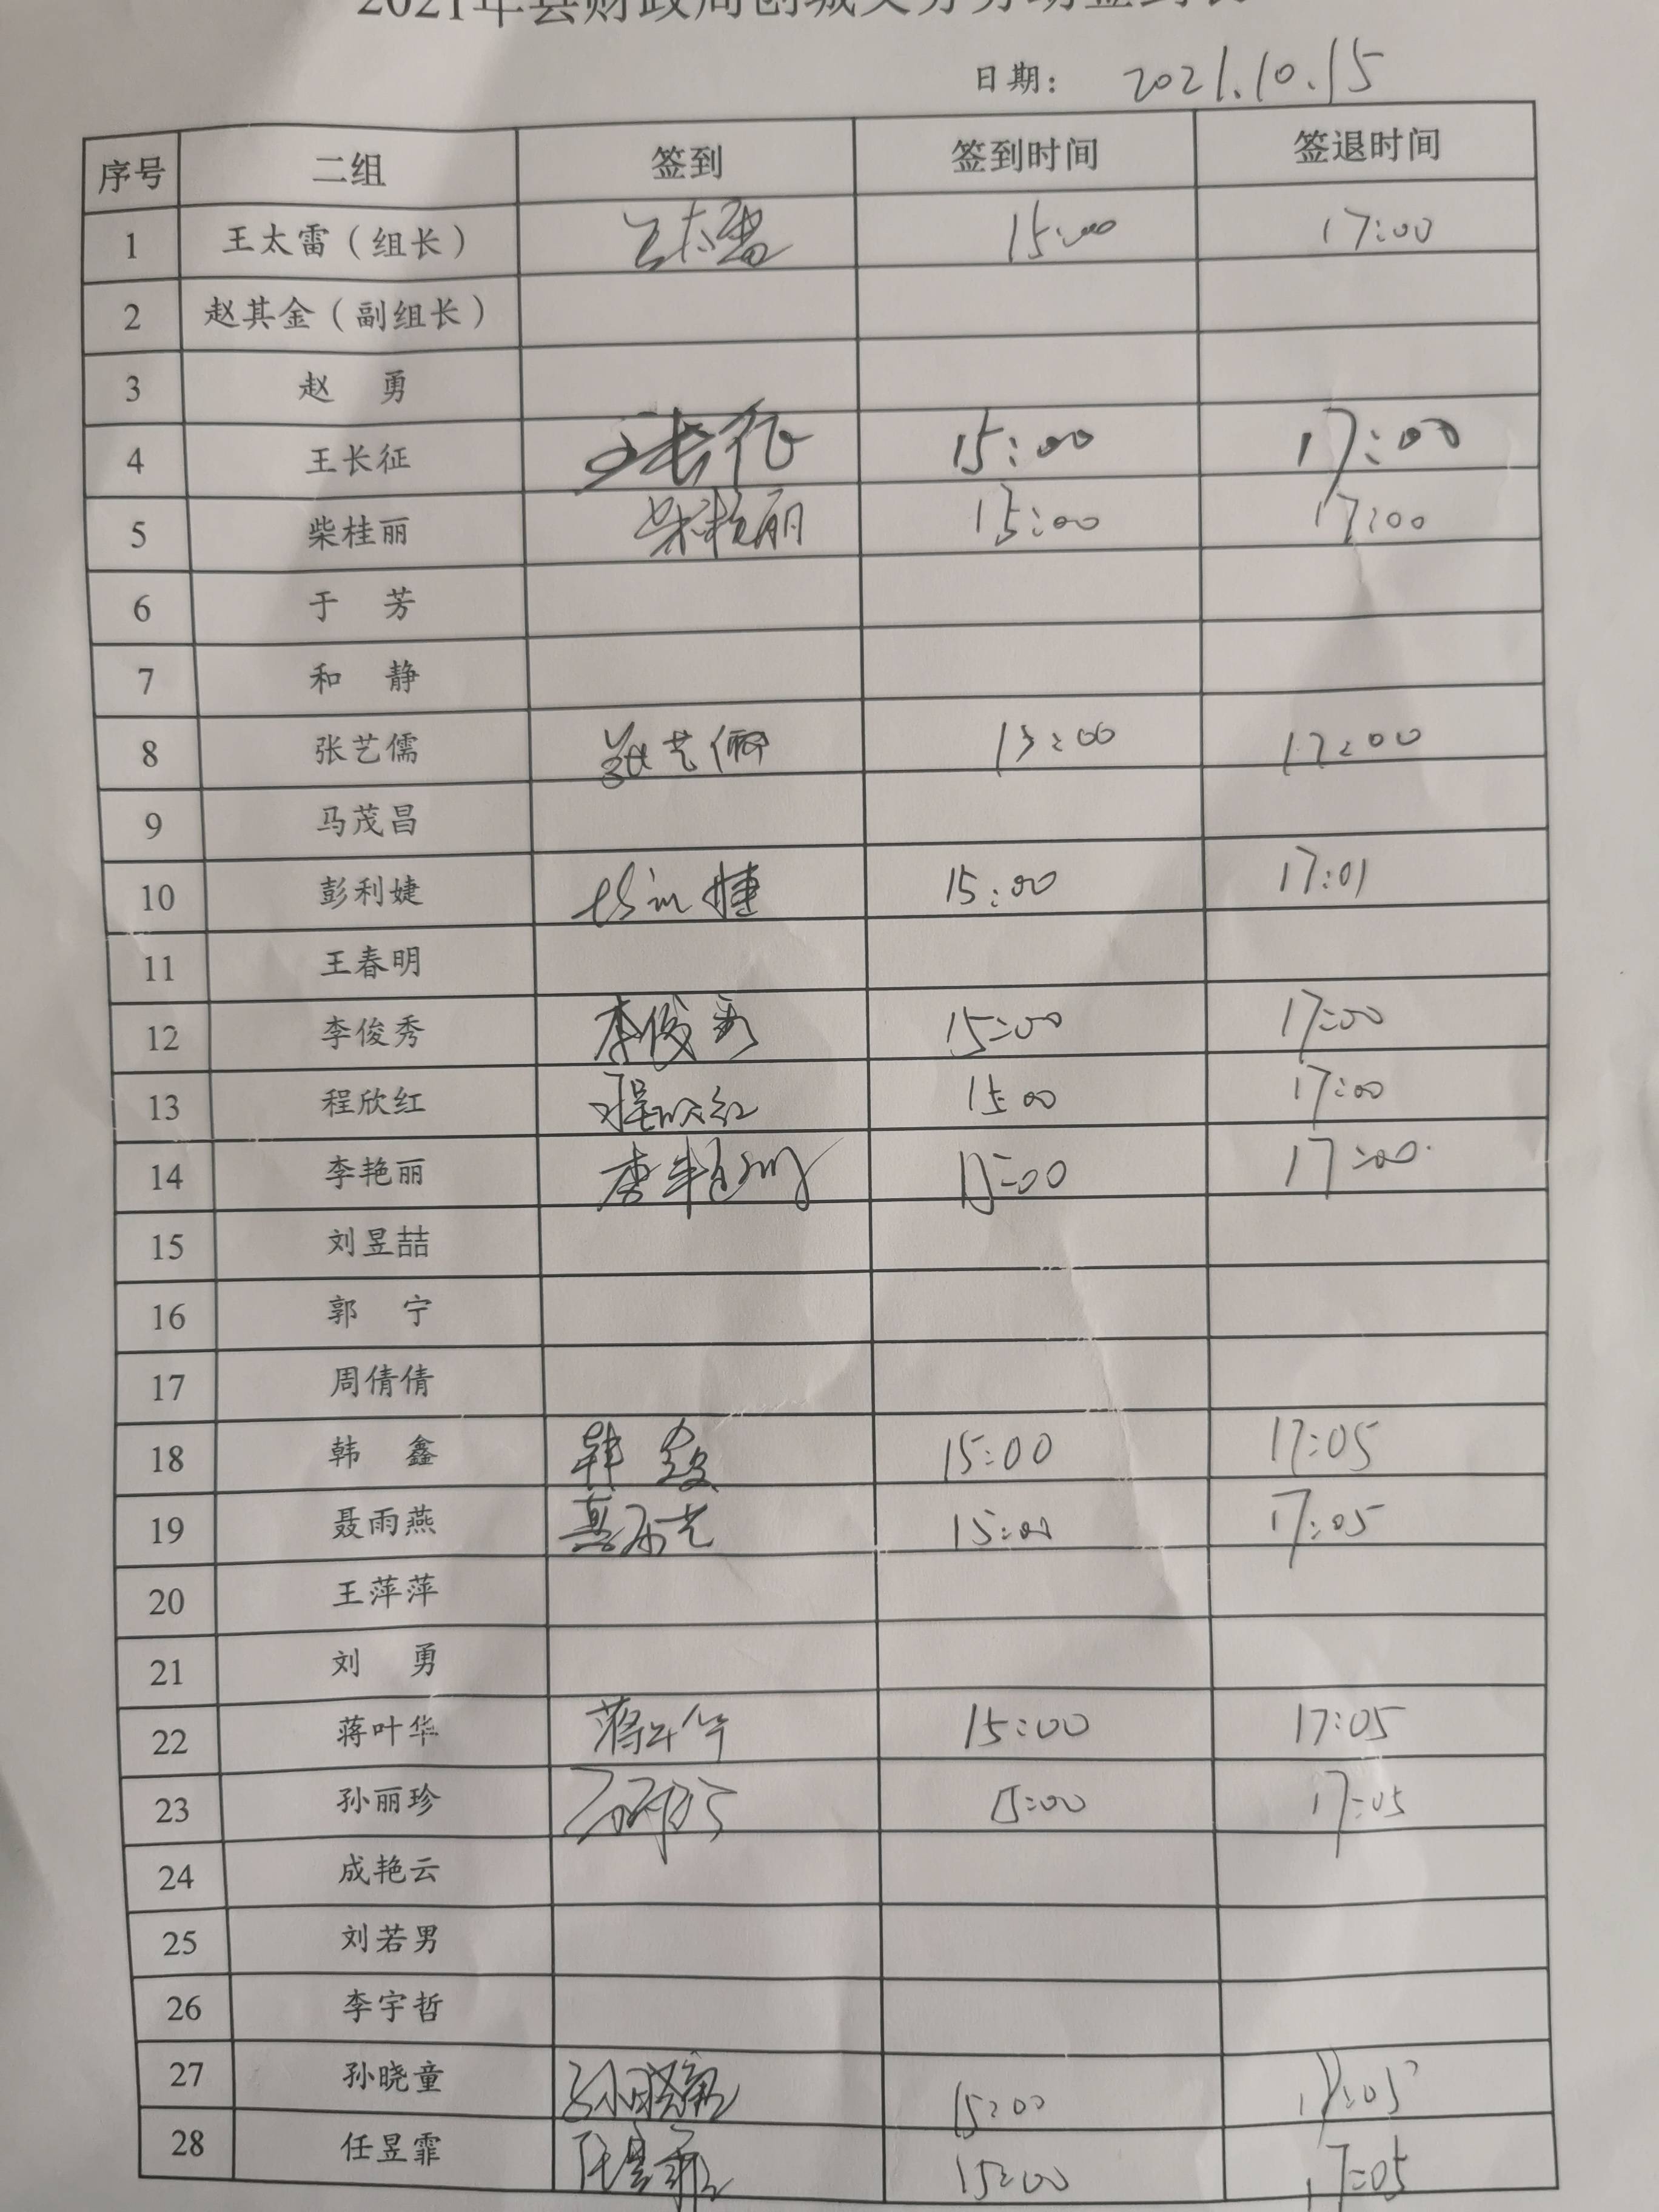 2021年县财政局创城义务劳动签到表
日期： 2021.10.15
序号 二组 签到 签到时间 签退时间
1 王太雷（组长） 王太雷 15:00 17:00
2 赵其金（副组长）
3 赵 勇
4 王长征 王长征 15:00 17:00
5 柴桂丽 柴桂丽 15:00 17:00
6 于 芳
7 和 静
8 张艺儒 张艺儒 15:00 17:00
9 马茂昌
10 彭利婕 15:00 17:01
11 王春明
12 李俊秀 李俊秀 15:00 17:00
13 程欣红 程欣红 15:00 17:00
14 李艳丽 李艳丽 15:00 17:00
15 刘昱喆
16 郭 宁
17 周倩倩
18 韩 鑫 韩鑫 15:00 17:05
19 聂雨燕 聂雨燕 15:00 17:05
20 王萍萍
21 刘 勇
22 蒋叶华 蒋叶华 15:00 17:05
23 孙丽珍 孙丽珍 15:00 17:05
24 成艳云
25 刘若男
26 李宇哲
27 孙晓童 孙晓童 15:00 17:05
28 任昱霏 任昱霏 15:00 17:05